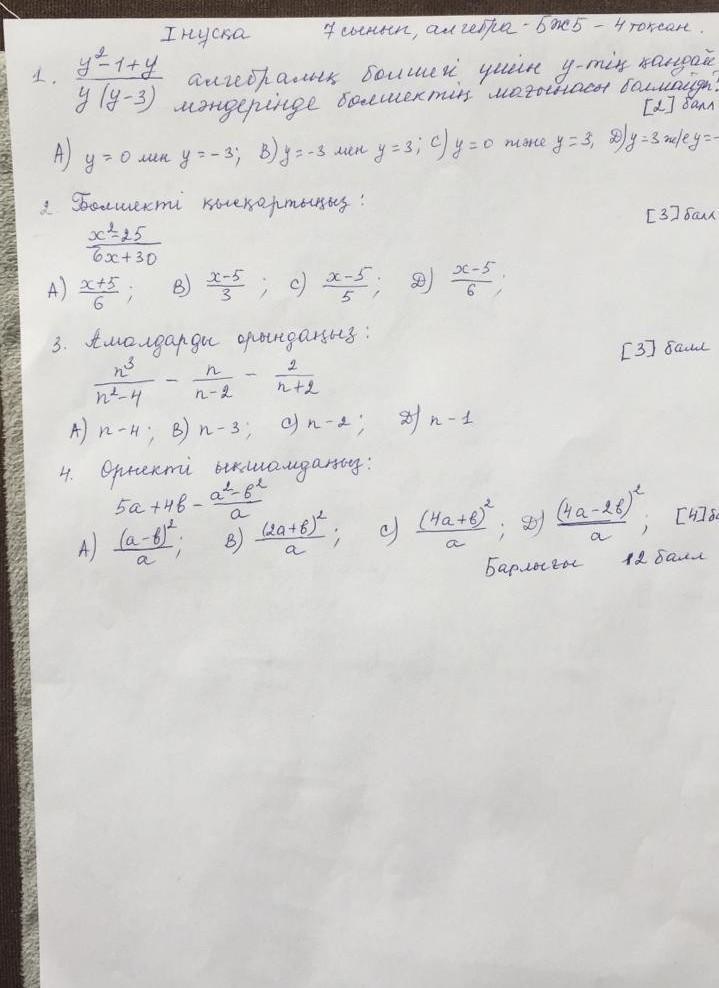 I нұсқа 7 сынып, алгебра - БЖБ - 4 тоқсан.
1. (y²-1+y)/(y(y-3)) алгебралық бөлшегі үшін y-тің қандай
мәндерінде бөлшектің мағынасы болмайды?
[2] балл
A) y=0 мен y=-3; B) y=-3 мен y=3; C) y=0 және y=3; D) y=3 ж/е y=-
2. Бөлшекті қысқартыңыз:
[3] балл
(x²-25)/(6x+30)
A) (x+5)/6; B) (x-5)/3; C) (x-5)/5; D) (x-5)/6;
3. Амалдарды орындаңыз:
[3] балл
n³/(n²-4) - n/(n-2) - 2/(n+2)
A) n-4; B) n-3; C) n-2; D) n-1
4. Өрнекті ықшамдаңыз:
5a+4b-(a²-b²)/a
A) (a-b)²/a; B) (2a+b)²/a; C) (4a+b)²/a; D) (4a-2b)²/a; [4] ба
Барлығы 12 балл